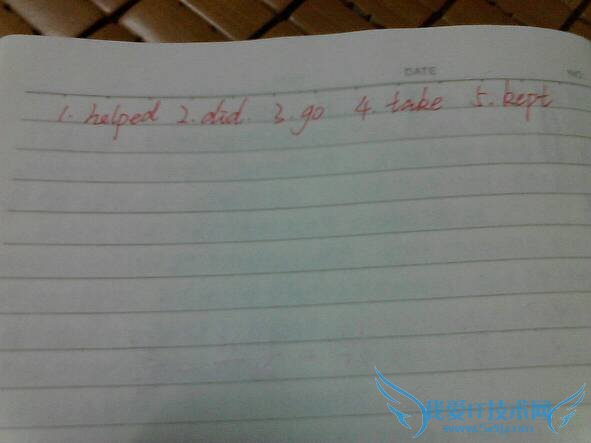 DATE
NO.
1. helped 2. did. 3. go 4. take 5. kept
我爱IT技术网